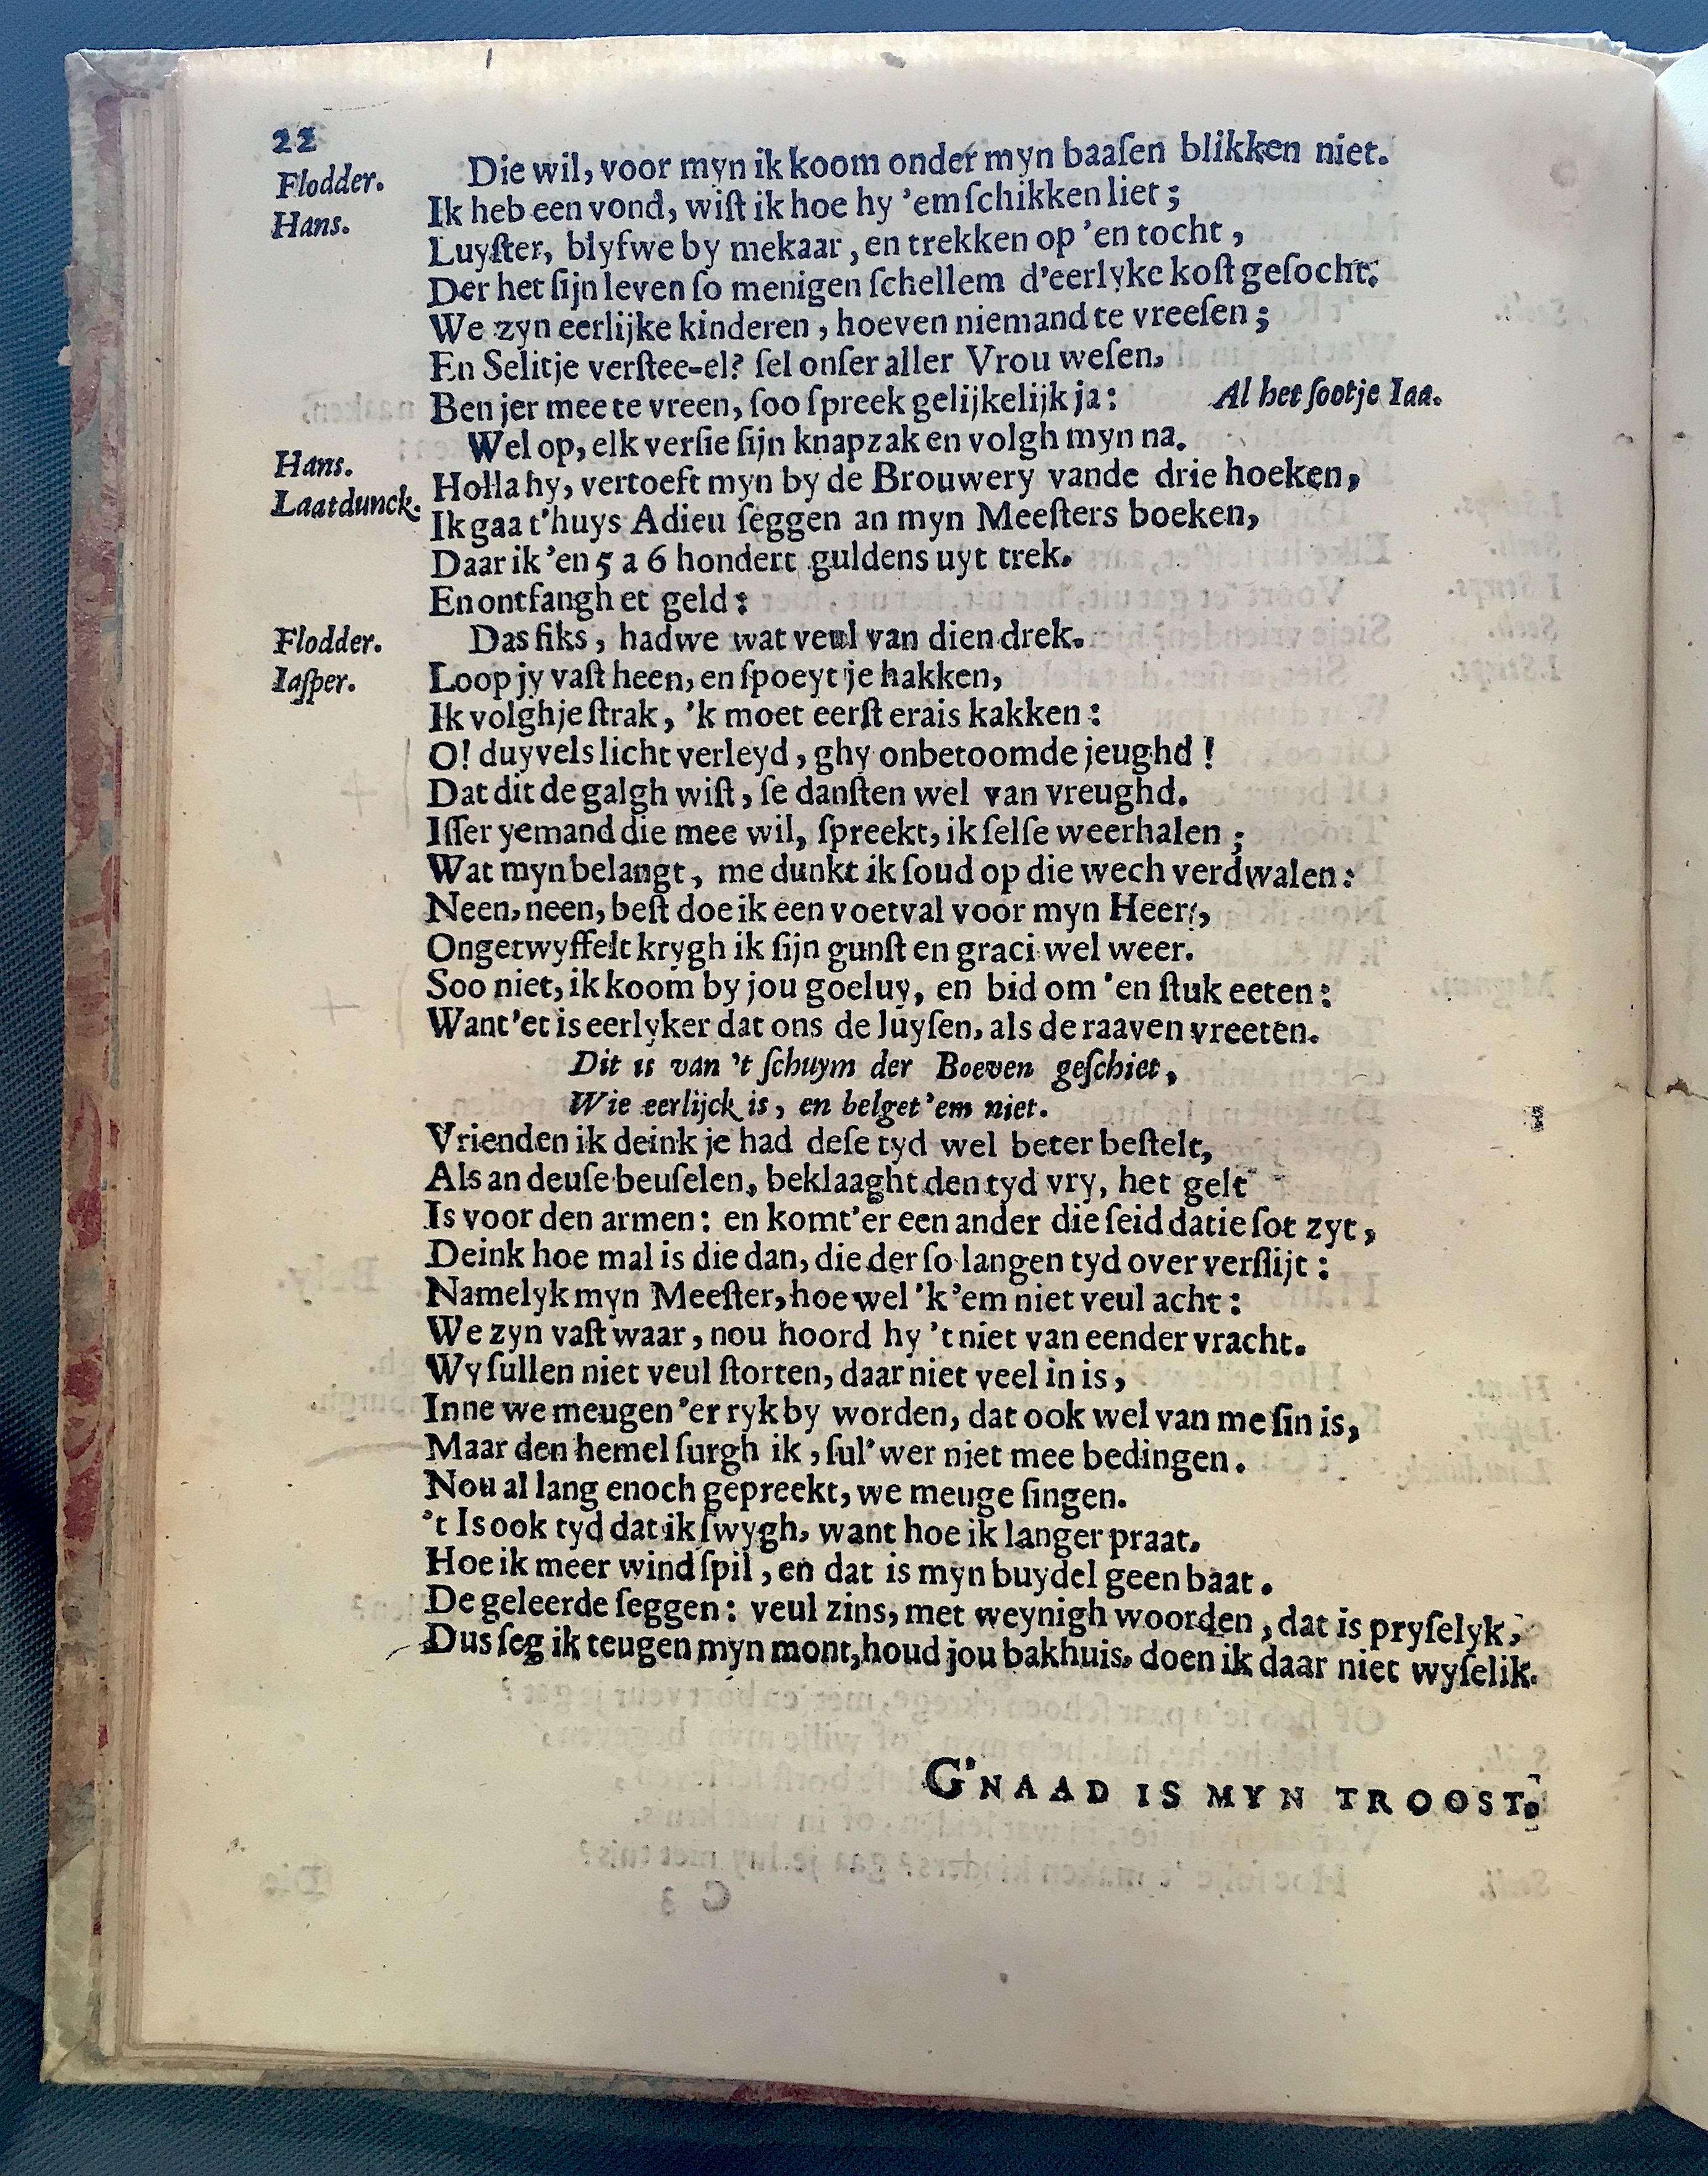 22
Flodder. Die wil, voor myn ik koom onder myn baaſen blikken niet.
Hans. Ik heb een vond, wiſt ik hoe hy 'em ſchikken liet;
Luyſter, blyfwe by mekaar, en trekken op 'en tocht,
Der het ſijn leven ſo menigen ſchellem d'eerlyke koſt geſocht.
We zyn eerlijke kinderen, hoeven niemand te vreeſen;
En Selitje verſtee-el? ſel onſer aller Vrou weſen.
Ben jer mee te vreen, ſoo ſpreek gelijkelijk ja: Al het ſootje Iaa.
Hans. Wel op, elk verſie ſijn knapzak en volgh myn na.
Laatdunck. Holla hy, vertoeft myn by de Brouwery vande drie hoeken,
Ik gaa t'huys Adieu ſeggen an myn Meeſters boeken,
Daar ik 'en 5 a 6 hondert guldens uyt trek.
En ontfangh et geld:
Flodder. Das fiks, hadwe wat veul van dien drek.
Iaſper. Loop jy vaſt heen, en ſpoeyt je hakken,
Ik volgh je ſtrak, 'k moet eerſt erais kakken:
O! duyvels licht verleyd, ghy onbetoomde jeughd!
Dat dit de galgh wiſt, ſe danſten wel van vreughd.
Iſſer yemand die mee wil, ſpreekt, ik ſelſe weerhalen;
Wat myn belangt, me dunkt ik ſoud op die wech verdwalen:
Neen, neen, beſt doe ik een voetval voor myn Heer,
Ongetwyffelt krygh ik ſijn gunſt en graci wel weer.
Soo niet, ik koom by jou goeluy, en bid om 'en ſtuk eeten:
Want 'et is eerlyker dat ons de luyſen, als de raaven vreeten.
Dit is van 't ſchuym der Boeven geſchiet,
Wie eerlijck is, en belget 'em niet.
Vrienden ik deink je had deſe tyd wel beter beſtelt,
Als an deuſe beuſelen, beklaaght den tyd vry, het gelt
Is voor den armen: en komt'er een ander die ſeid datie ſot zyt,
Deink hoe mal is die dan, die der ſo langen tyd over verſlijt:
Namelyk myn Meeſter, hoe wel 'k 'em niet veul acht:
We zyn vaſt waar, nou hoord hy 't niet van eender vracht.
Wy ſullen niet veul ſtorten, daar niet veel in is,
Inne we meugen 'er ryk by worden, dat ook wel van me ſin is,
Maar den hemel ſurgh ik, ſul'wer niet mee bedingen.
Nou al lang enoch gepreekt, we meuge ſingen.
't Is ook tyd dat ik ſwygh, want hoe ik langer praat.
Hoe ik meer wind ſpil, en dat is myn buydel geen baat.
De geleerde ſeggen: veul zins, met weynigh woorden, dat is pryſelyk,
Dus ſeg ik teugen myn mont, houd jou bakhuis, doen ik daar niet wyſelik.
G'NAAD IS MYN TROOST.